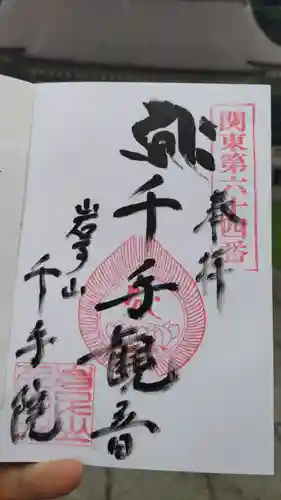 関東第六十四番
奉拝
千手観音
岩弓山
千手院